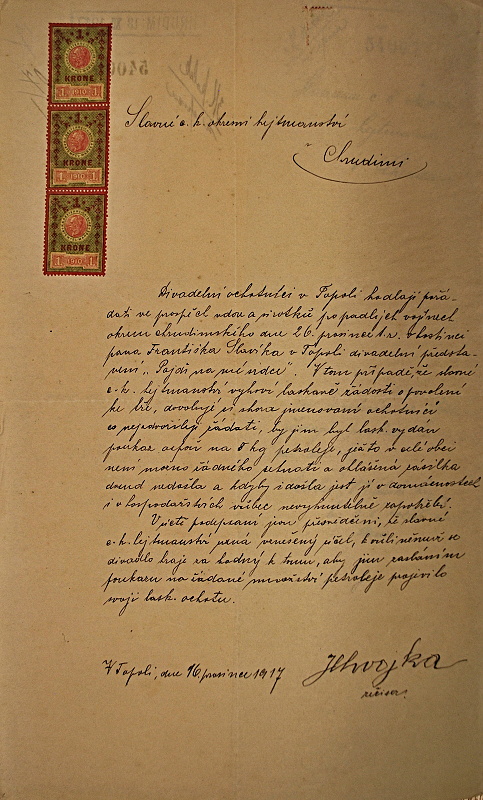 1
KRONE
1 1910 1
1
KRONE
1 1910 1
1
KRONE
1 1910 1
Slavné c. k. okresní hejtmanství
v Chrudimi
Divadelní ochotníci v Topoli hodlají pořá-
dati ve prospěch vdov a sirotků po padlých vojínech
okresu chrudimského dne 26. prosince t. r. v hostinci
pana Františka Slavíka v Topoli divadelní předsta-
vení „Pojď na mé srdce". V tom případě, že slavné
c. k. hejtmanství vyhoví laskavě žádosti o povolení
ke hře, dovolují si shora jmenovaní ochotníci
co nejzdvořileji žádati, by jim byl lask. vydán
poukaz aspoň na 8 kg petroleje, ježto v celé obci
není možno žádného sehnati a ohlášená zásilka
dosud nedošla a kdyby i došla jest jí v domácnostech
i v hospodářstvích vůbec nevyhnutelně zapotřebí.
V úctě podepsaní jsou přesvědčeni, že slavné
c. k. hejtmanství uzná vznešený účel, k vůli němuž se
divadlo hraje za hodný k tomu, aby jim zasláním
poukazu na žádané množství petroleje projevilo
svoji lask. ochotu.
V Topoli, dne 16. prosince 1917
JHvojka
režisér.